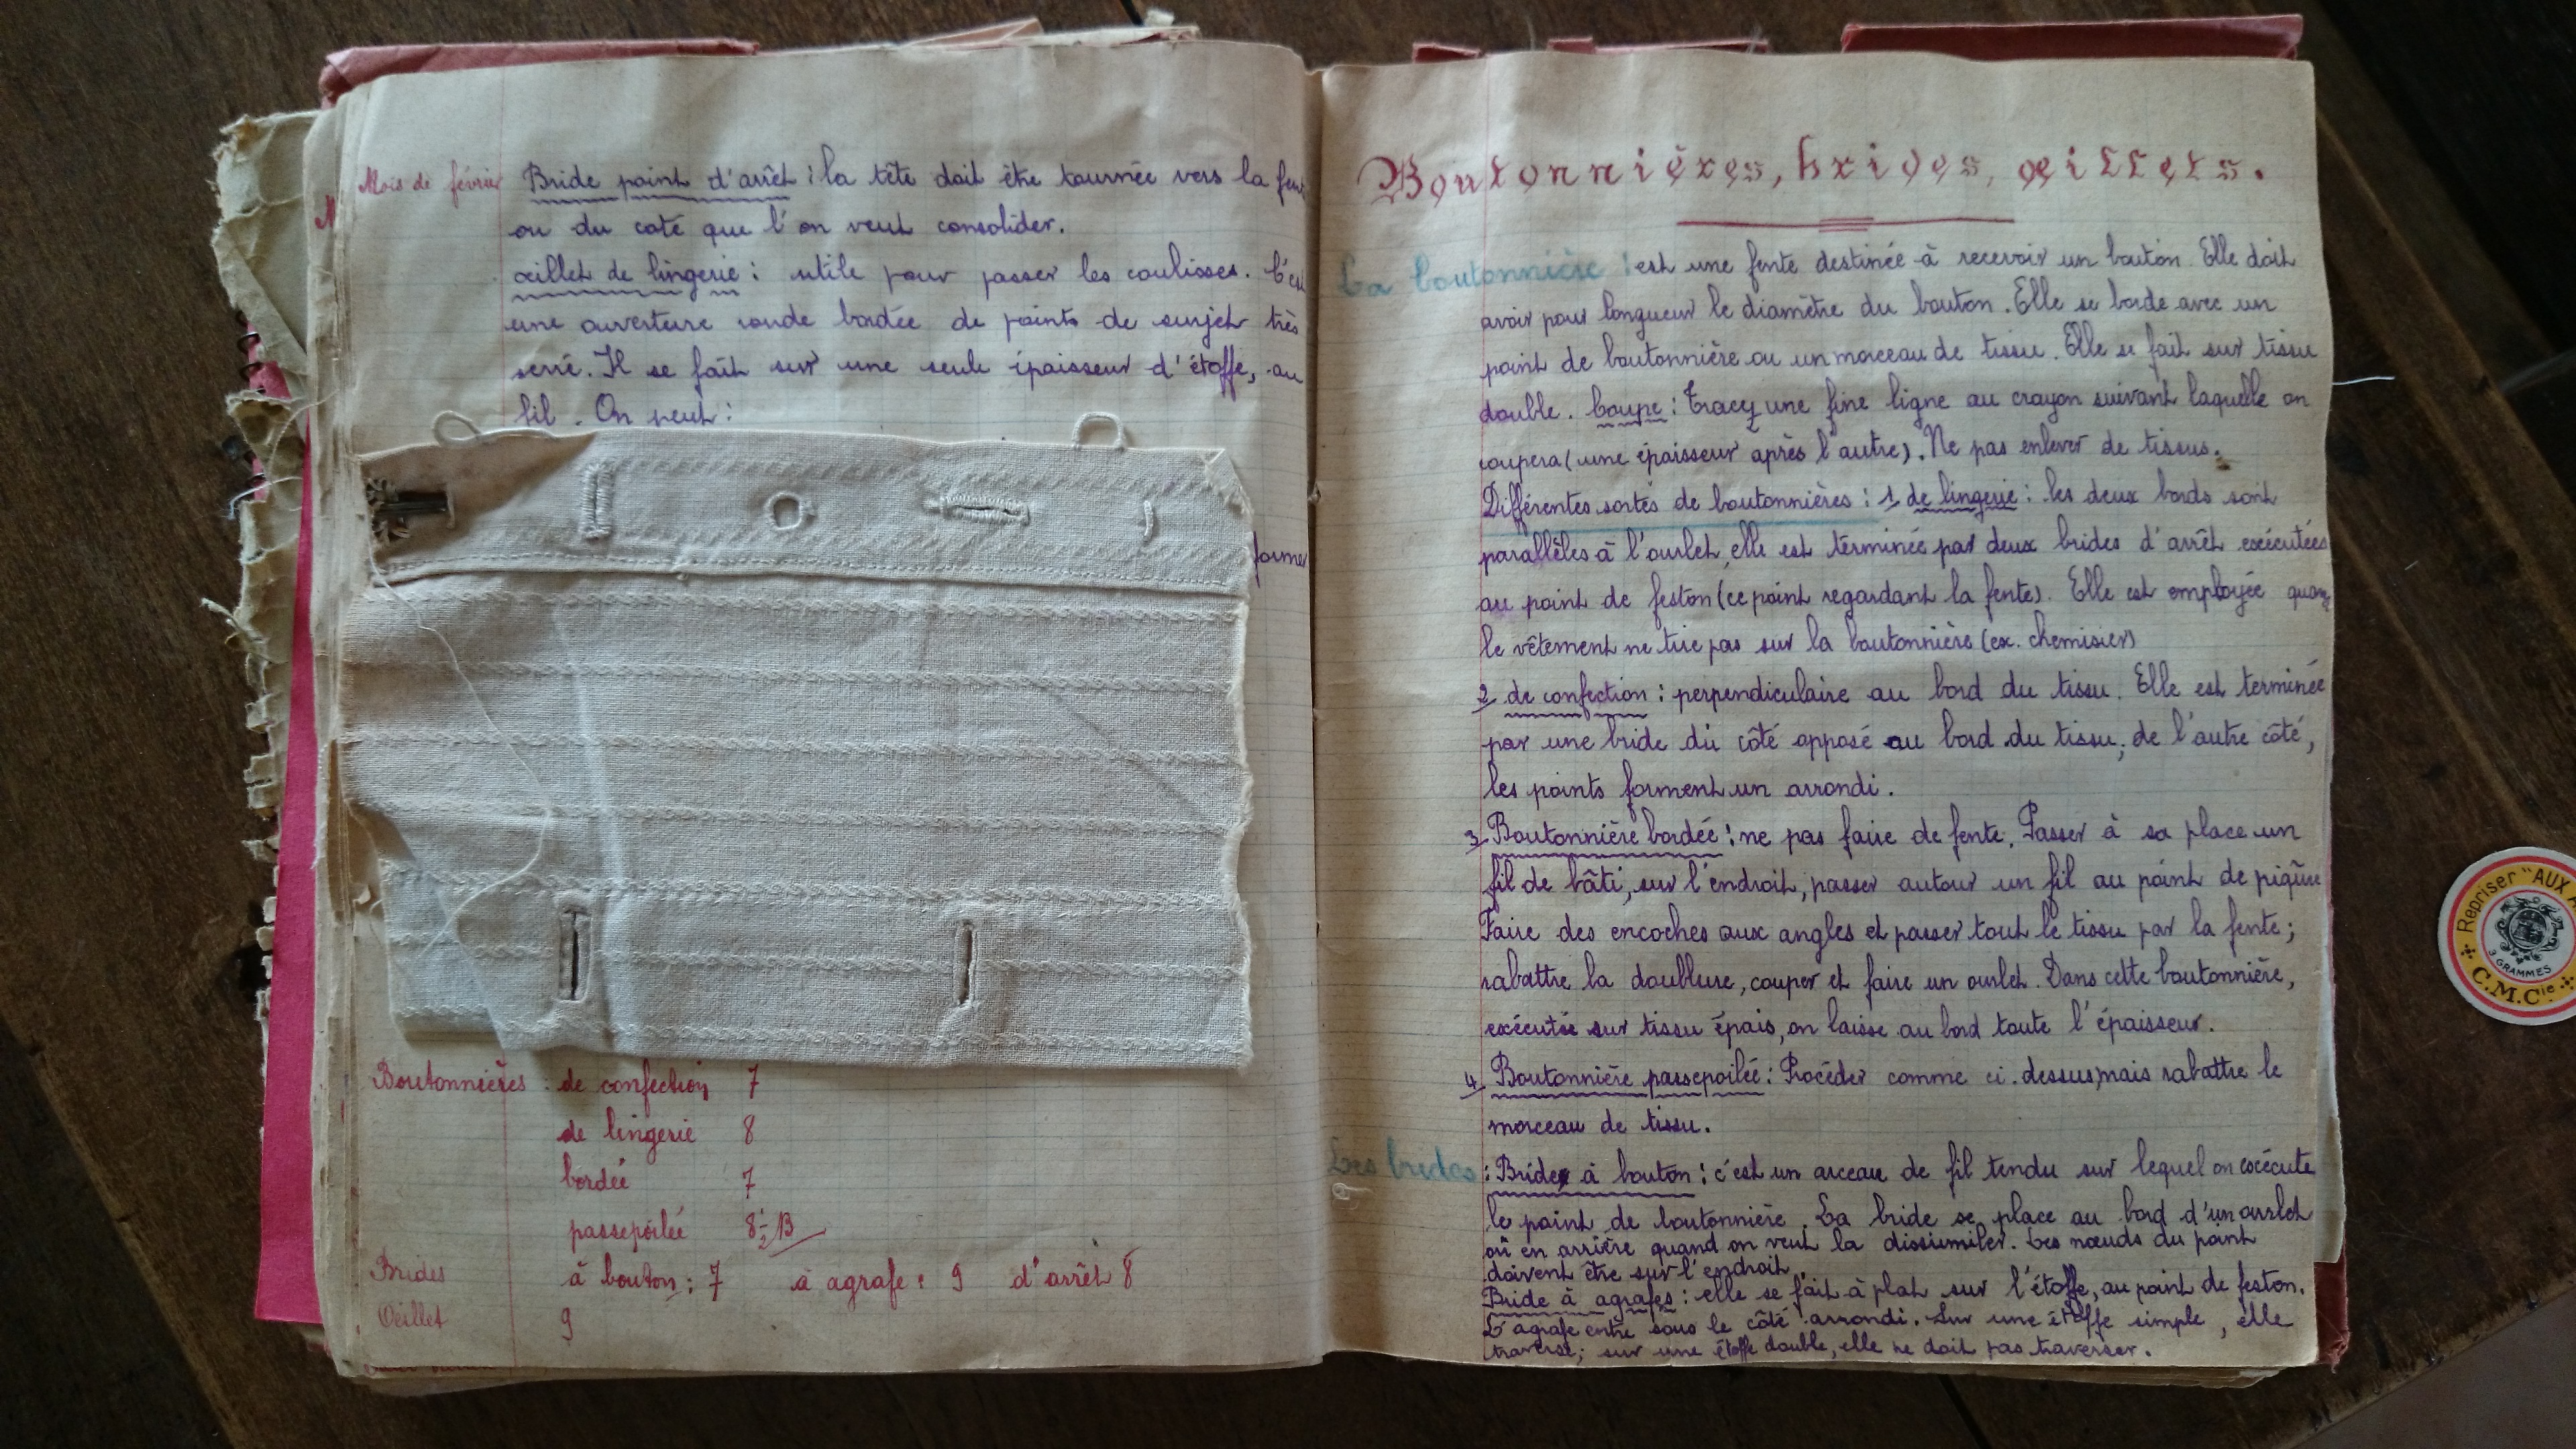 Mois de février Bride point d'arrêt : la tête doit être tournée vers la
ou du coté que l'on veut consolider.
œillet de lingerie : utile pour passer les coulisses. C'est
une ouverture ronde bordée de points de surjet très
serré. Il se fait sur une seule épaisseur d'étoffe, au
fil. On peut :
former
Boutonnières : de confection 7
de lingerie 8
bordée 7
passepoilée 8 1/2 B
Brides à bouton : 7 à agrafe : 9 d'arrêt 8
Œillet 9
Boutonnières, brides, œillets.
La boutonnière : est une fente destinée à recevoir un bouton. Elle doit
avoir pour longueur le diamètre du bouton. Elle se borde avec un
point de boutonnière ou un morceau de tissu. Elle se fait sur tissu
double. Coupe : Tracez une fine ligne au crayon suivant laquelle on
coupera (une épaisseur après l'autre). Ne pas enlever de tissus.
Différentes sortes de boutonnières : 1 de lingerie : les deux bords sont
parallèles à l'ourlet, elle est terminée par deux brides d'arrêt exécutées
au point de feston (ce point regardant la fente). Elle est employée quand
le vêtement ne tire pas sur la boutonnière (ex. chemisier)
2 de confection : perpendiculaire au bord du tissu. Elle est terminée
par une bride du côté opposé au bord du tissu ; de l'autre côté,
les points forment un arrondi.
3 Boutonnière bordée : ne pas faire de fente. Passer à sa place un
fil de bâti, sur l'endroit, passer autour un fil au point de piqûre
Faire des encoches aux angles et passer tout le tissu par la fente ;
rabattre la doublure, couper et faire un ourlet. Dans cette boutonnière,
exécutée sur tissu épais, on laisse au bord toute l'épaisseur.
4 Boutonnière passepoilée : Procéder comme ci.dessus, mais rabattre le
morceau de tissu.
Les brides : Bride à bouton : c'est un arceau de fil tendu sur lequel on exécute
le point de boutonnière. La bride se place au bord d'un ourlet
où en arrière quand on veut la dissimiler. Les nœuds du point
doivent être sur l'endroit.
Bride à agrafes : elle se fait à plat sur l'étoffe, au point de feston.
L'agrafe entre sous le côté arrondi. Sur une étoffe simple, elle
traverse ; sur une étoffe double, elle ne doit pas traverser.
Repriser "AUX
3 GRAMMES
C.M.Cie